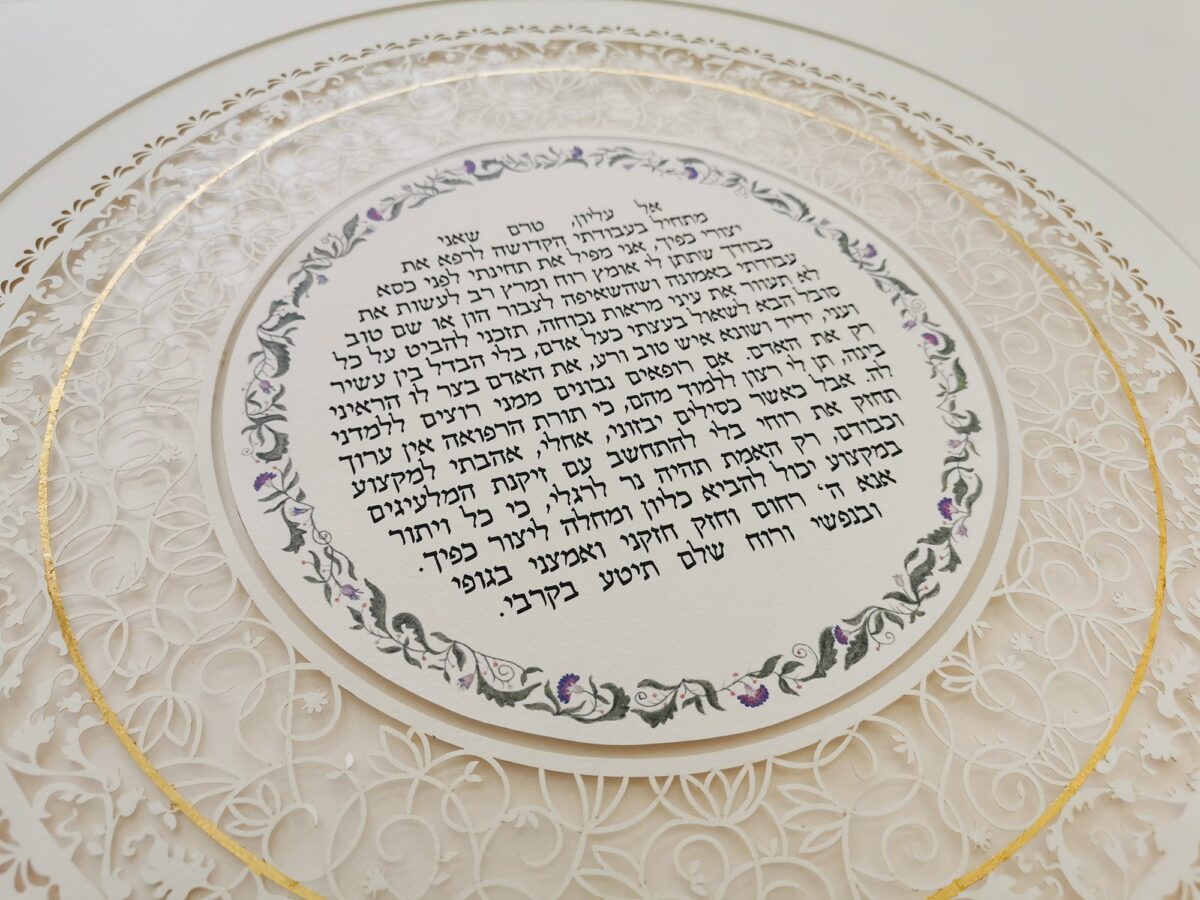 אל עליון, טרם שאני
מתחיל בעבודתי הקדושה לרפא את
יצורי כפיך, אני מפיל את תחינתי לפני כסא
כבודך שתתן לי אומץ רוח ומרץ רב לעשות את
עבודתי באמונה ושהשאיפה לצבור הון או שם טוב
לא תעוור את עיני מראות נכוחה, תזכני להביט על כל
סובל הבא לשאול בעצתי כעל אדם, בלי הבדל בין עשיר
ועני, ידיד ושונא איש טוב ורע, את האדם בצר לו הראיני
רק את האדם. אם רופאים נבונים ממני רוצים ללמדני
בינה, תן לי רצון ללמוד מהם, כי תורת הרפואה אין ערוך
לה. אבל כאשר כסילים יבזוני, אחלי, אהבתי למקצוע
תחזק את רוחי בלי להתחשב עם זיקנת המלעיגים
וכבודם, רק האמת תהיה נר לרגלי, כי כל ויתור
במקצוע יכול להביא כליון ומחלה ליצור כפיך.
אנא ה' רחום וחזק חזקני ואמצני בגופי
ובנפשי ורוח שלם תיטע בקרבי.